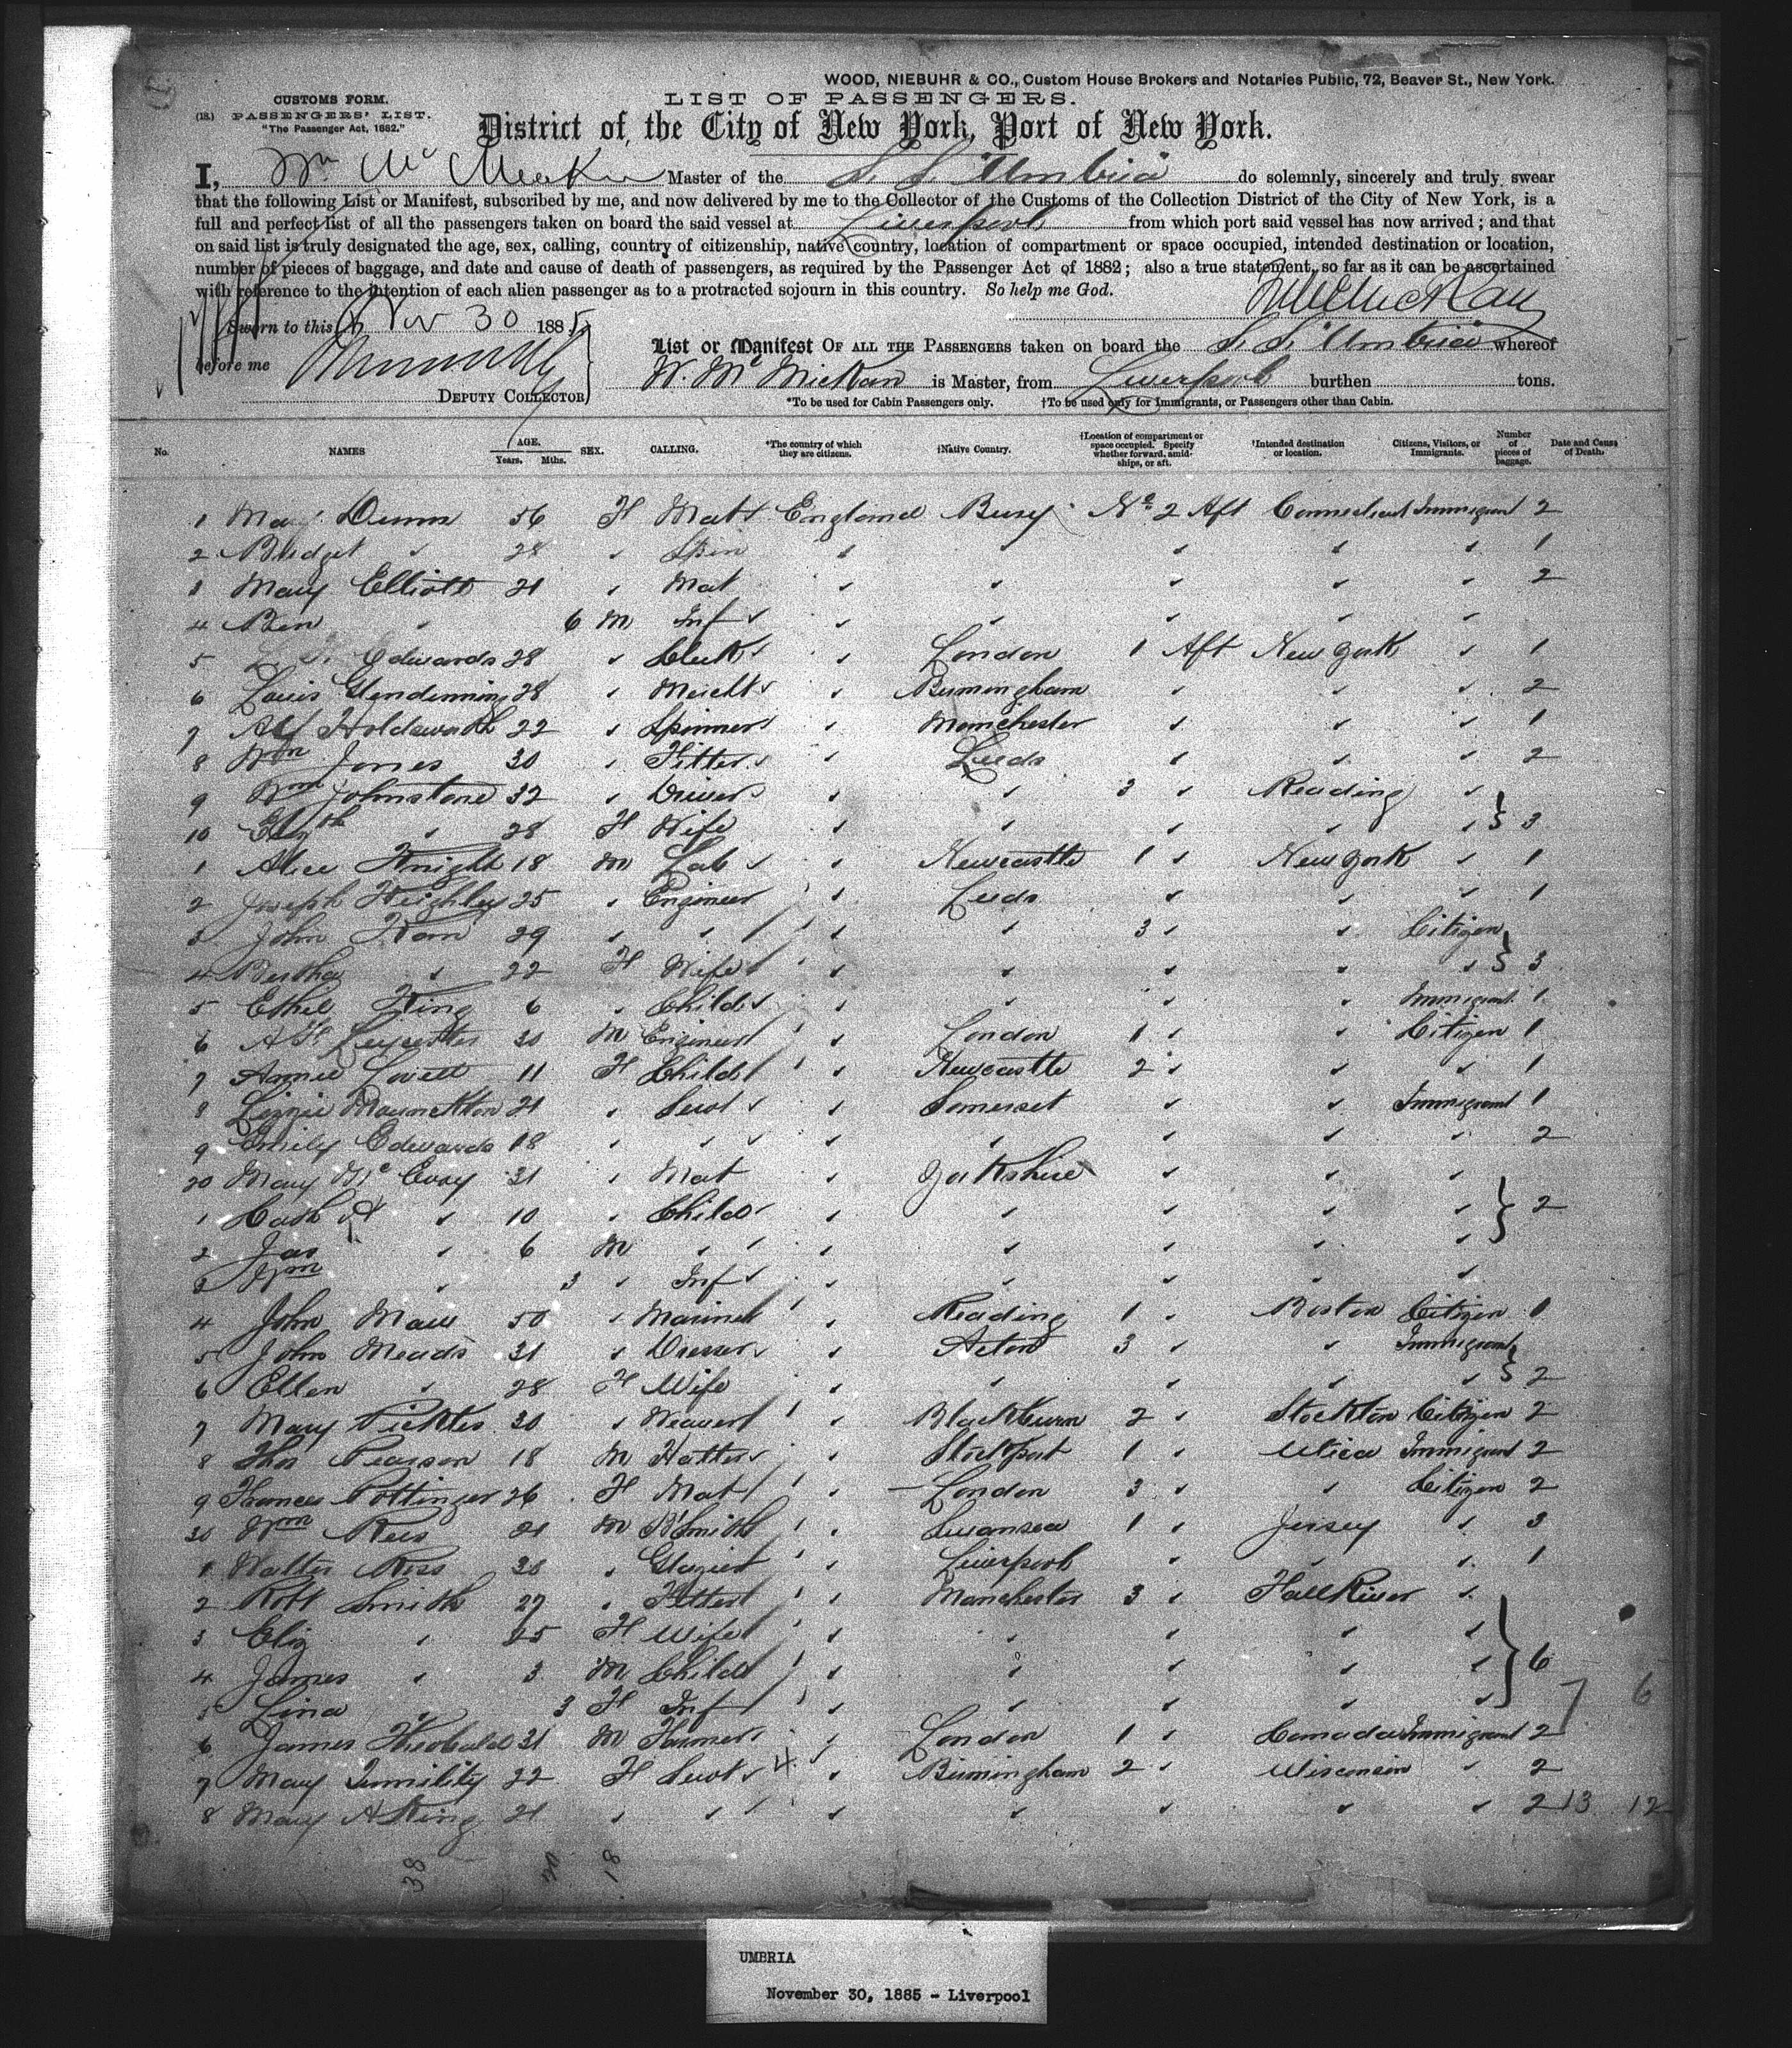 WOOD, NIEBUHR & CO., Custom House Brokers and Notaries Public, 72, Beaver St., New York.
CUSTOMS FORM.
LIST OF PASSENGERS.
(18.) PASSENGERS' LIST.
"The Passenger Act, 1882."
District of the City of New York, Port of New York.
I, Wm Mc Master of the S. S. "Umbria" do solemnly, sincerely and truly swear
that the following List or Manifest, subscribed by me, and now delivered by me to the Collector of the Customs of the Collection District of the City of New York, is a
full and perfect list of all the passengers taken on board the said vessel at Liverpool from which port said vessel has now arrived; and that
on said list is truly designated the age, sex, calling, country of citizenship, native country, location of compartment or space occupied, intended destination or location,
number of pieces of baggage, and date and cause of death of passengers, as required by the Passenger Act of 1882; also a true statement, so far as it can be ascertained
with reference to the intention of each alien passenger as to a protracted sojourn in this country. So help me God.
Sworn to this Nov 30 1885
before me
DEPUTY COLLECTOR
List or Manifest OF ALL THE PASSENGERS taken on board the S. S. "Umbria" whereof
W. Mc Mickan is Master, from Liverpool burthen tons.
*To be used for Cabin Passengers only. †To be used only for Immigrants, or Passengers other than Cabin.
No. NAMES AGE. Years. Mths. SEX. CALLING. *The country of which they are citizens. †Native Country. †Location of compartment or space occupied. Specify whether forward, amidships, or aft. †Intended destination or location. Citizens, Visitors, or Immigrants. Number of pieces of baggage. Date and Cause of Death.
1 Mary Dunn 56 F Mat England Bury No 2 Aft Connecticut Immigrant 2
2 Bridget " 28 " Spin " " " " " 1
3 Mary Elliott 21 " Mat " " " " " 2
4 Ben " 6 M Inf " " " " "
5 Edwards 28 " Clerk " London 1 Aft New York " 1
6 Louis Glendinning 28 " Mercht " Birmingham " " " 2
7 Alf Holdsworth 22 " Spinner " Manchester " " " 1
8 Wm Jones 30 " Fitter " Leeds " " " 2
9 Wm Johnstone 32 " Driver " " 3 " Reading "
10 Elizth " 28 F Wife " " " " " 3
1 Alice Knight 18 M Lab " Newcastle 1 " New York " 1
2 Joseph Heighley 25 " Engineer " Leeds " " " 1
3 John 29 " " " " 3 " " Citizen
4 Bertha " 22 F Wife " " " " " 3
5 Ethel King 6 " Child " " " " Immigrant 1
6 30 M Engineer " London 1 " " Citizen 1
7 Annie Lovett 11 F Child " Newcastle 2 " " " 1
8 Lizzie 21 " Servt " Somerset " " Immigrant 1
9 Emily Edwards 18 " " " " " " " 2
20 Mary Mc Evoy 31 " Mat Yorkshire " " "
1 " 10 " Child " " " " " 2
2 Jas " 6 M " " " " " "
3 Wm " 3 " Inf " " " " "
4 John Maw 50 " Mariner Reading 1 " Boston Citizen 1
5 John Meads 31 " Dresser " Acton 3 " " Immigrant
6 Ellen " 28 F Wife " " " " " 2
7 Mary Pickles 30 " Weaver " Blackburn 2 " Stockton Citizen 2
8 Thos Pearson 18 M Hatter " Stockport 1 " Utica Immigrant 2
9 Frances Pottinger 26 F Mat " London 3 " " Citizen 2
30 Wm Rees 21 M B'Smith " Swansea 1 " Jersey " 3
1 Walter Ross 38 " Glazier " Liverpool " " " 1
2 Robt Smith 27 " Fitter " Manchester 3 " Fall River "
3 Eliz " 25 F Wife " " " " "
4 James " 3 M Child " " " " " 6
5 Lina " 3 F Inf " " " " "
7 6
6 James Theobald 31 M Farmer " London 1 " Canada Immigrant 2
7 Mary 22 F Servt " Birmingham 2 " Wisconsin " 2
8 Mary A King 21 " " " " " " " 2 13 12
38 20 18
UMBRIA
November 30, 1885 - Liverpool